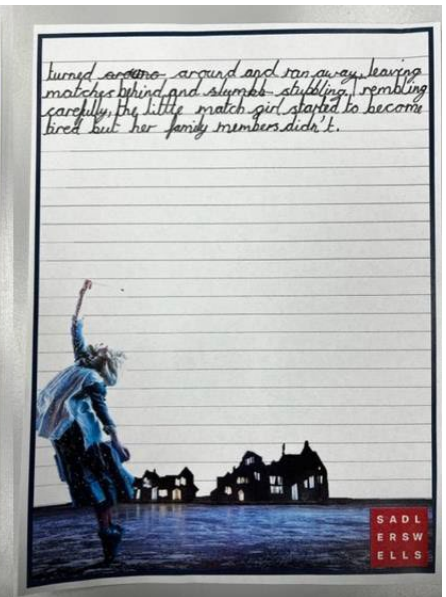 turned around around and ran away, leaving
matches behind and slumbb stubbling. Trembling
carefully, the little match girl started to become
tired but her family members didn't.
SADL
ERSW
ELLS